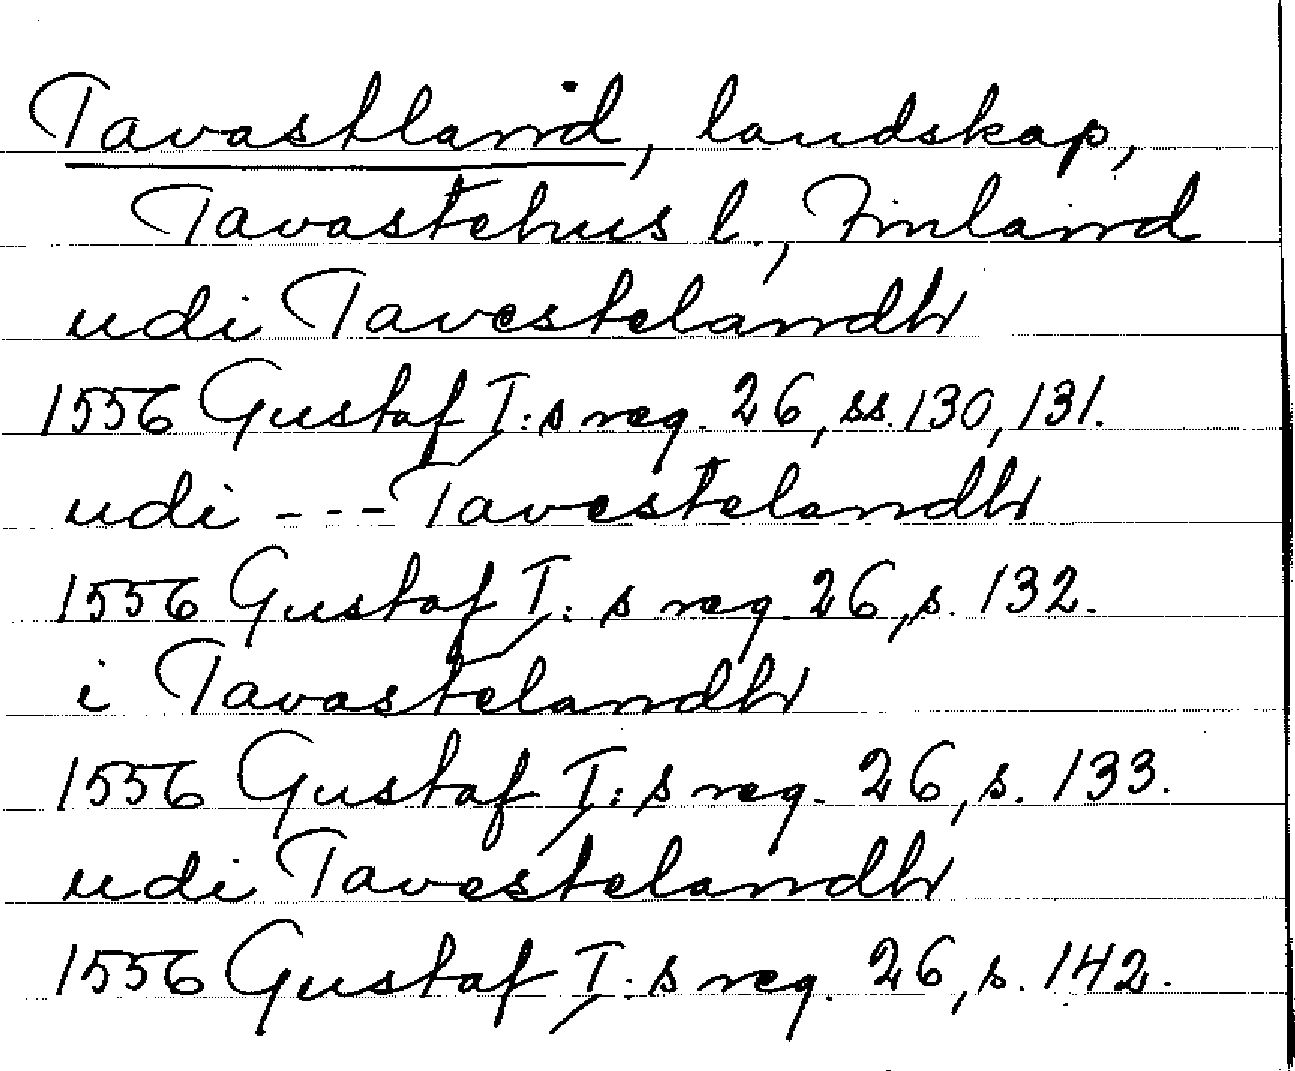 Tavastland, landskap,
Tavastehus l., Finland
udi Tavestelandh
1556 Gustaf I:s reg. 26, ss. 130, 131.
udi --- Tavestelandh
1556 Gustaf I:s reg. 26, s. 132.
i Tavastelandh
1556 Gustaf I:s reg. 26, s. 133.
udi Tavestelandh
1556 Gustaf I:s reg. 26, s. 142.